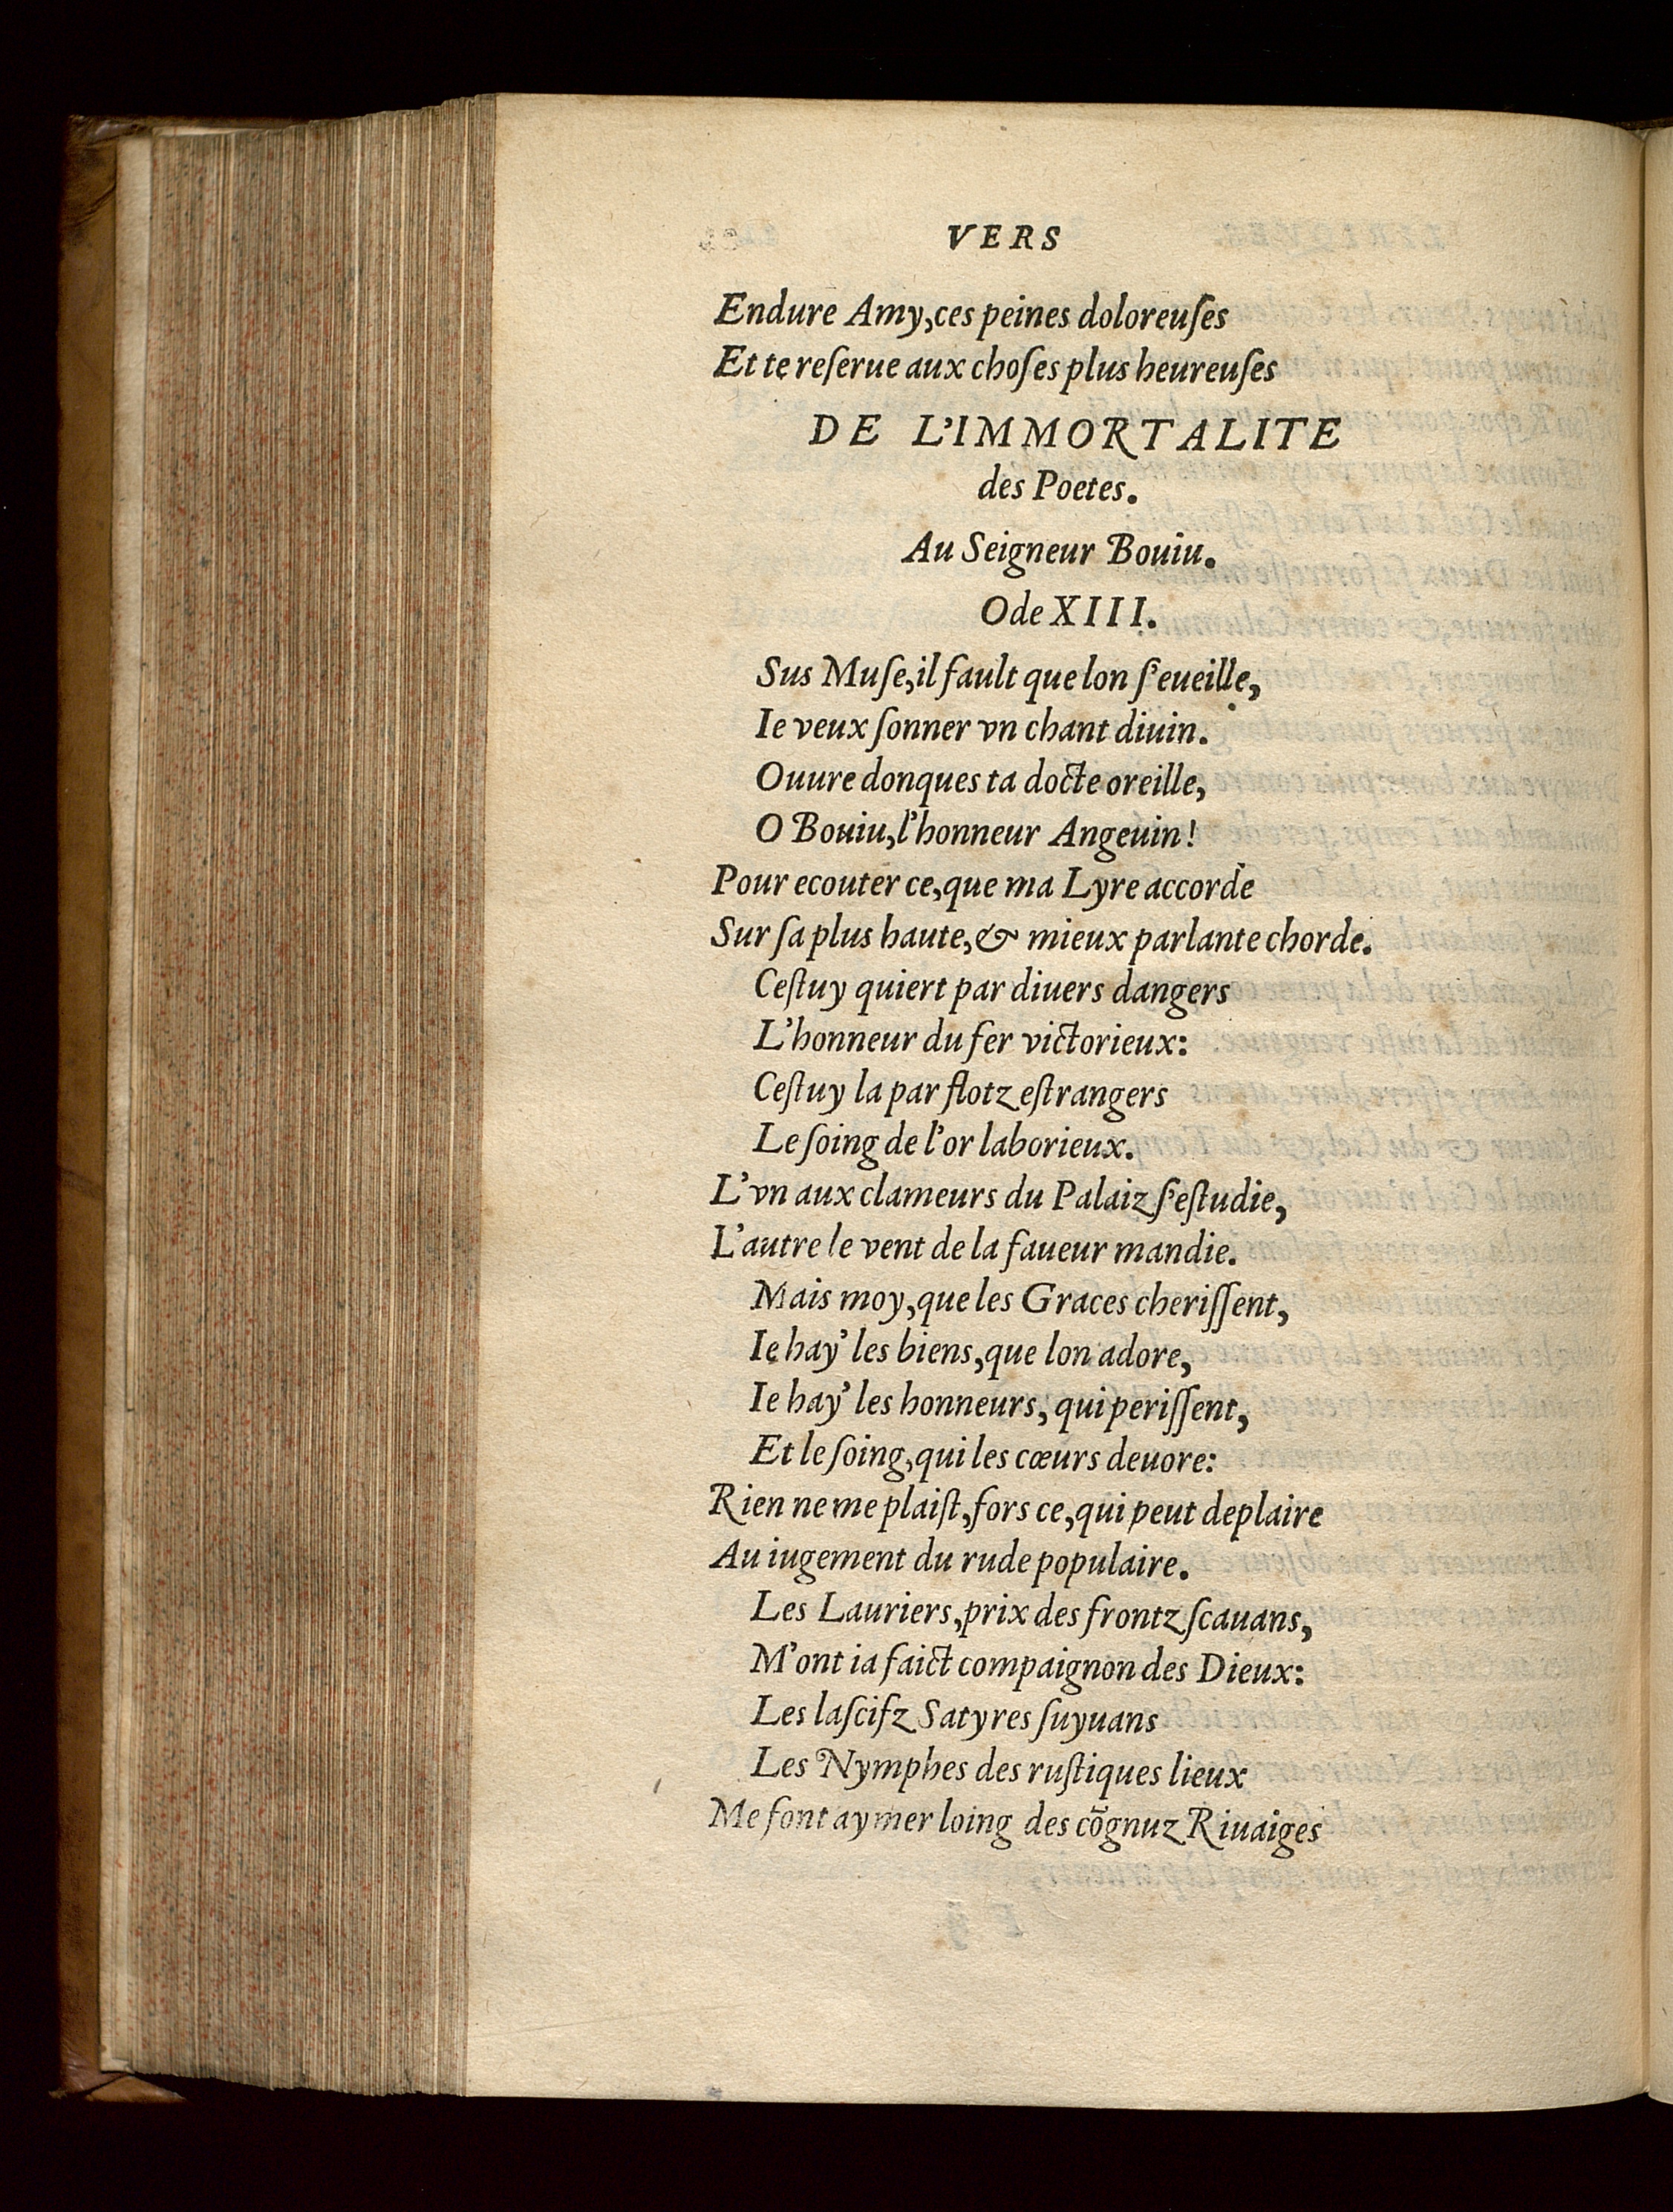 VERS
Endure Amy, ces peines doloreuſes
Et te reſerue aux choſes plus heureuſes
DE L'IMMORTALITE
des Poetes.
Au Seigneur Bouiu.
Ode XIII.
Sus Muſe, il fault que lon ſ'eueille,
Ie veux ſonner vn chant diuin.
Ouure donques ta docte oreille,
O Bouiu, l'honneur Angeuin!
Pour ecouter ce, que ma Lyre accorde
Sur ſa plus haute, & mieux parlante chorde.
Ceſtuy quiert par diuers dangers
L'honneur du fer victorieux:
Ceſtuy la par flotz eſtrangers
Le ſoing de l'or laborieux.
L'vn aux clameurs du Palaiz ſ'eſtudie,
L'autre le vent de la faueur mandie.
Mais moy, que les Graces cheriſſent,
Ie hay' les biens, que lon adore,
Ie hay' les honneurs, qui periſſent,
Et le ſoing, qui les cœurs deuore:
Rien ne me plaiſt, fors ce, qui peut deplaire
Au iugement du rude populaire.
Les Lauriers, prix des frontz ſcauans,
M'ont ia faict compaignon des Dieux:
Les laſcifz Satyres ſuyuans
Les Nymphes des ruſtiques lieux
Me font aymer loing des cõgnuz Riuaiges